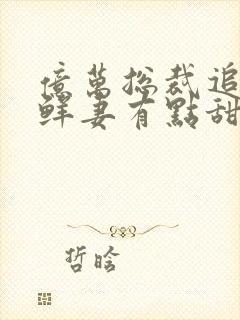 億萬總裁追
鮮妻有點甜
哲晗